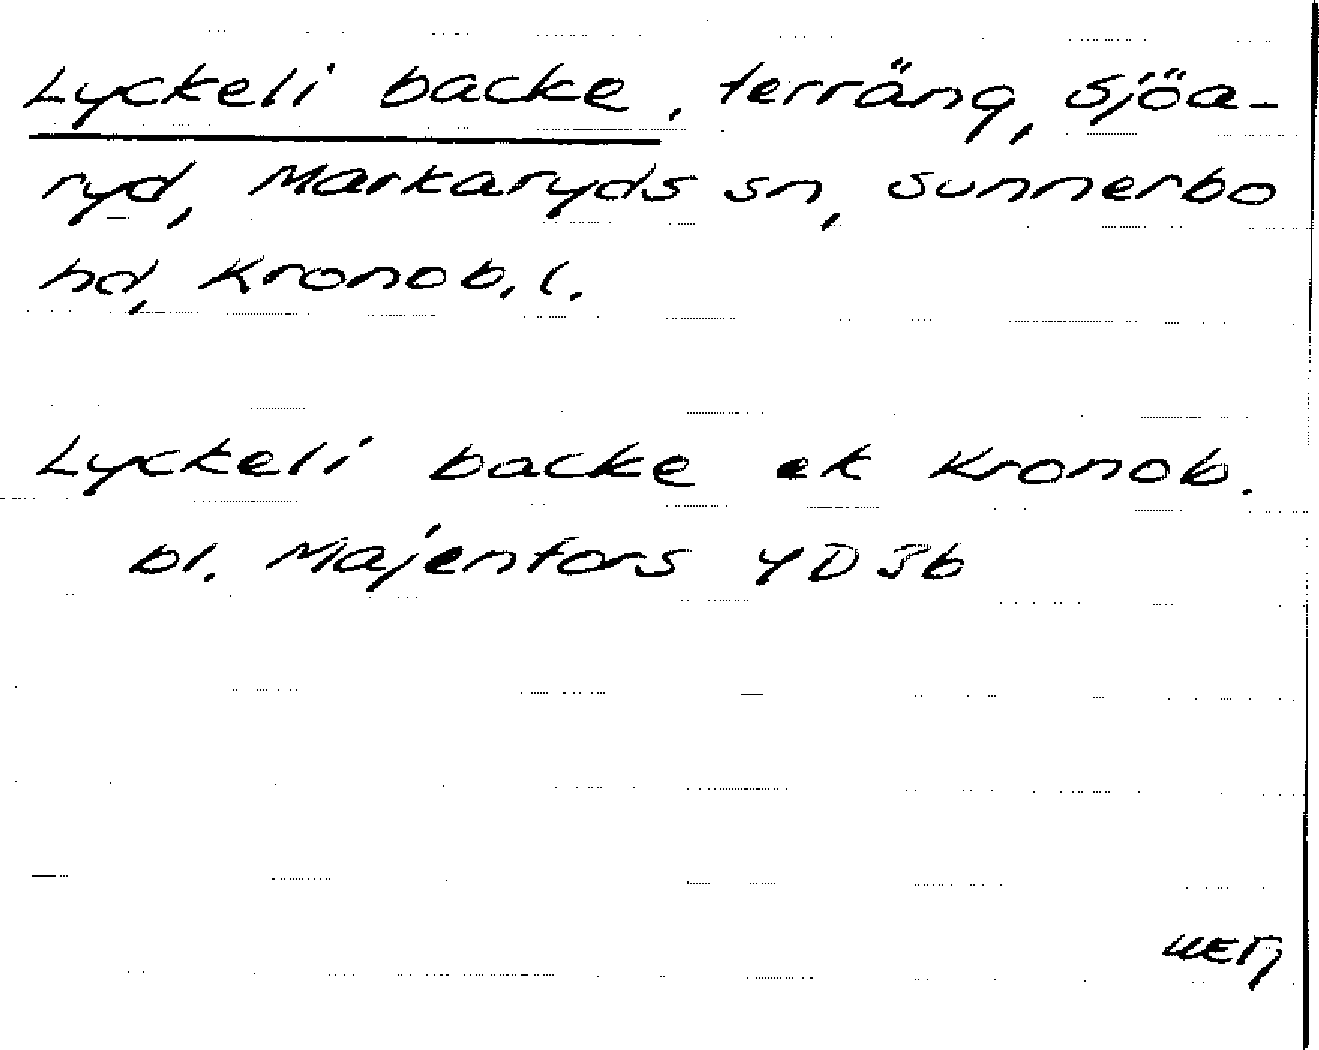 Lyckeli backe, terräng, Sjöa-
ryd, Markaryds sn, Sunnerbo
hd, Kronob. l.
Lyckeli backe ek Kronob.
bl. Majenfors 4D3b